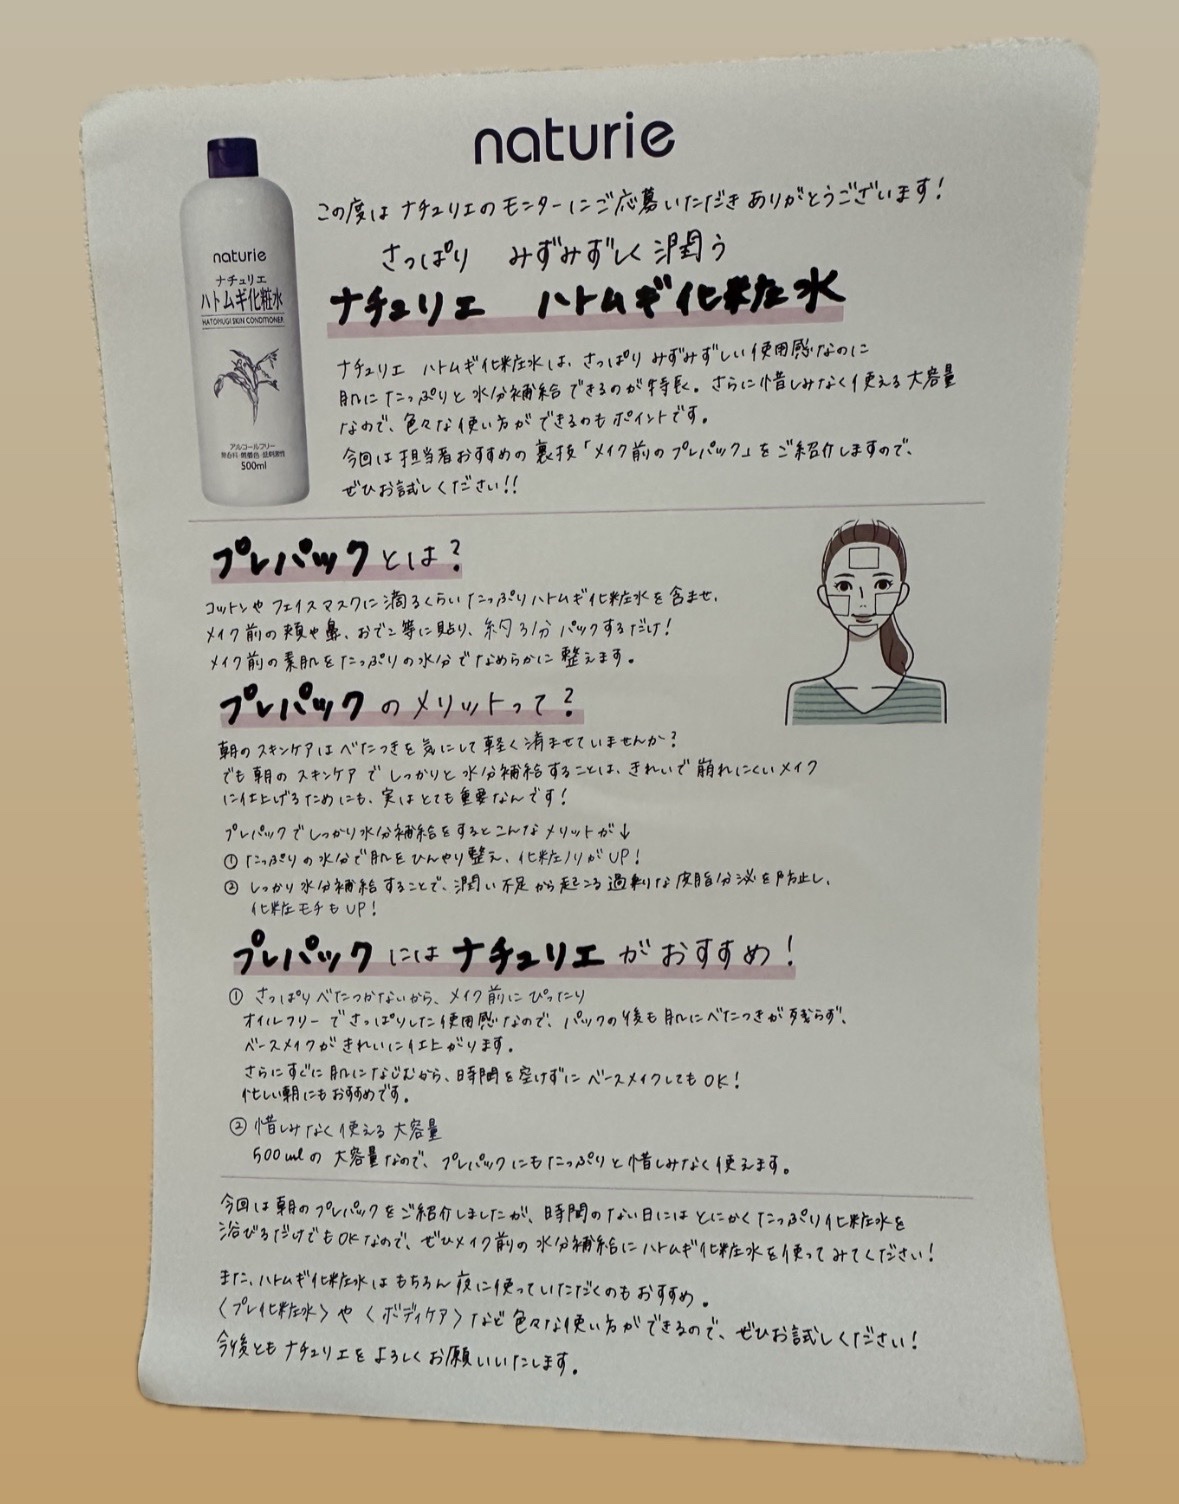 naturie
この度は ナチュリエのモニターにご応募いただき ありがとうございます!
さっぱり みずみずしく潤う
ナチュリエ ハトムギ化粧水
naturie
ナチュリエ
ハトムギ化粧水
HATOMUGI SKIN CONDITIONER
アルコールフリー
無香料・無着色・低刺激性
500ml
ナチュリエ ハトムギ化粧水は、さっぱり みずみずしい使用感なのに
肌にたっぷりと水分補給できるのが特長。さらに惜しみなく使える大容量
なので、色々な使い方ができるのもポイントです。
今回は担当者おすすめの裏技「メイク前のプレパック」をご紹介しますので、
ぜひお試しください!!
プレパックとは?
コットンやフェイスマスクに滴るくらいたっぷりハトムギ化粧水を含ませ、
メイク前の頬や鼻、おでこ等に貼り、約3分パックするだけ!
メイク前の素肌をたっぷりの水分でなめらかに整えます。
プレパックのメリットって?
朝のスキンケアはべたつきを気にして軽く済ませていませんか?
でも朝のスキンケアでしっかりと水分補給することは、きれいで崩れにくいメイク
に仕上げるためにも、実はとても重要なんです!
プレパックでしっかり水分補給をするとこんなメリットが↓
① たっぷりの水分で肌をひんやり整え、化粧ノリがUP!
② しっかり水分補給することで、潤い不足から起こる過剰な皮脂分泌を防止し、
化粧モチもUP!
プレパックにはナチュリエがおすすめ!
① さっぱりべたつかないから、メイク前にぴったり
オイルフリーでさっぱりした使用感なので、パックの後も肌にべたつきが残らず、
ベースメイクがきれいに仕上がります。
さらにすぐに肌になじむから、時間を空けずにベースメイクしてもOK!
忙しい朝にもおすすめです。
② 惜しみなく使える大容量
500mlの大容量なので、プレパックにもたっぷりと惜しみなく使えます。
今回は朝のプレパックをご紹介しましたが、時間のない日にはとにかくたっぷり化粧水を
浴びるだけでもOKなので、ぜひメイク前の水分補給にハトムギ化粧水を使ってみてください!
また、ハトムギ化粧水はもちろん夜に使っていただくのもおすすめ。
〈プレ化粧水〉や〈ボディケア〉など色々な使い方ができるので、ぜひお試しください!
今後ともナチュリエをよろしくお願いいたします。